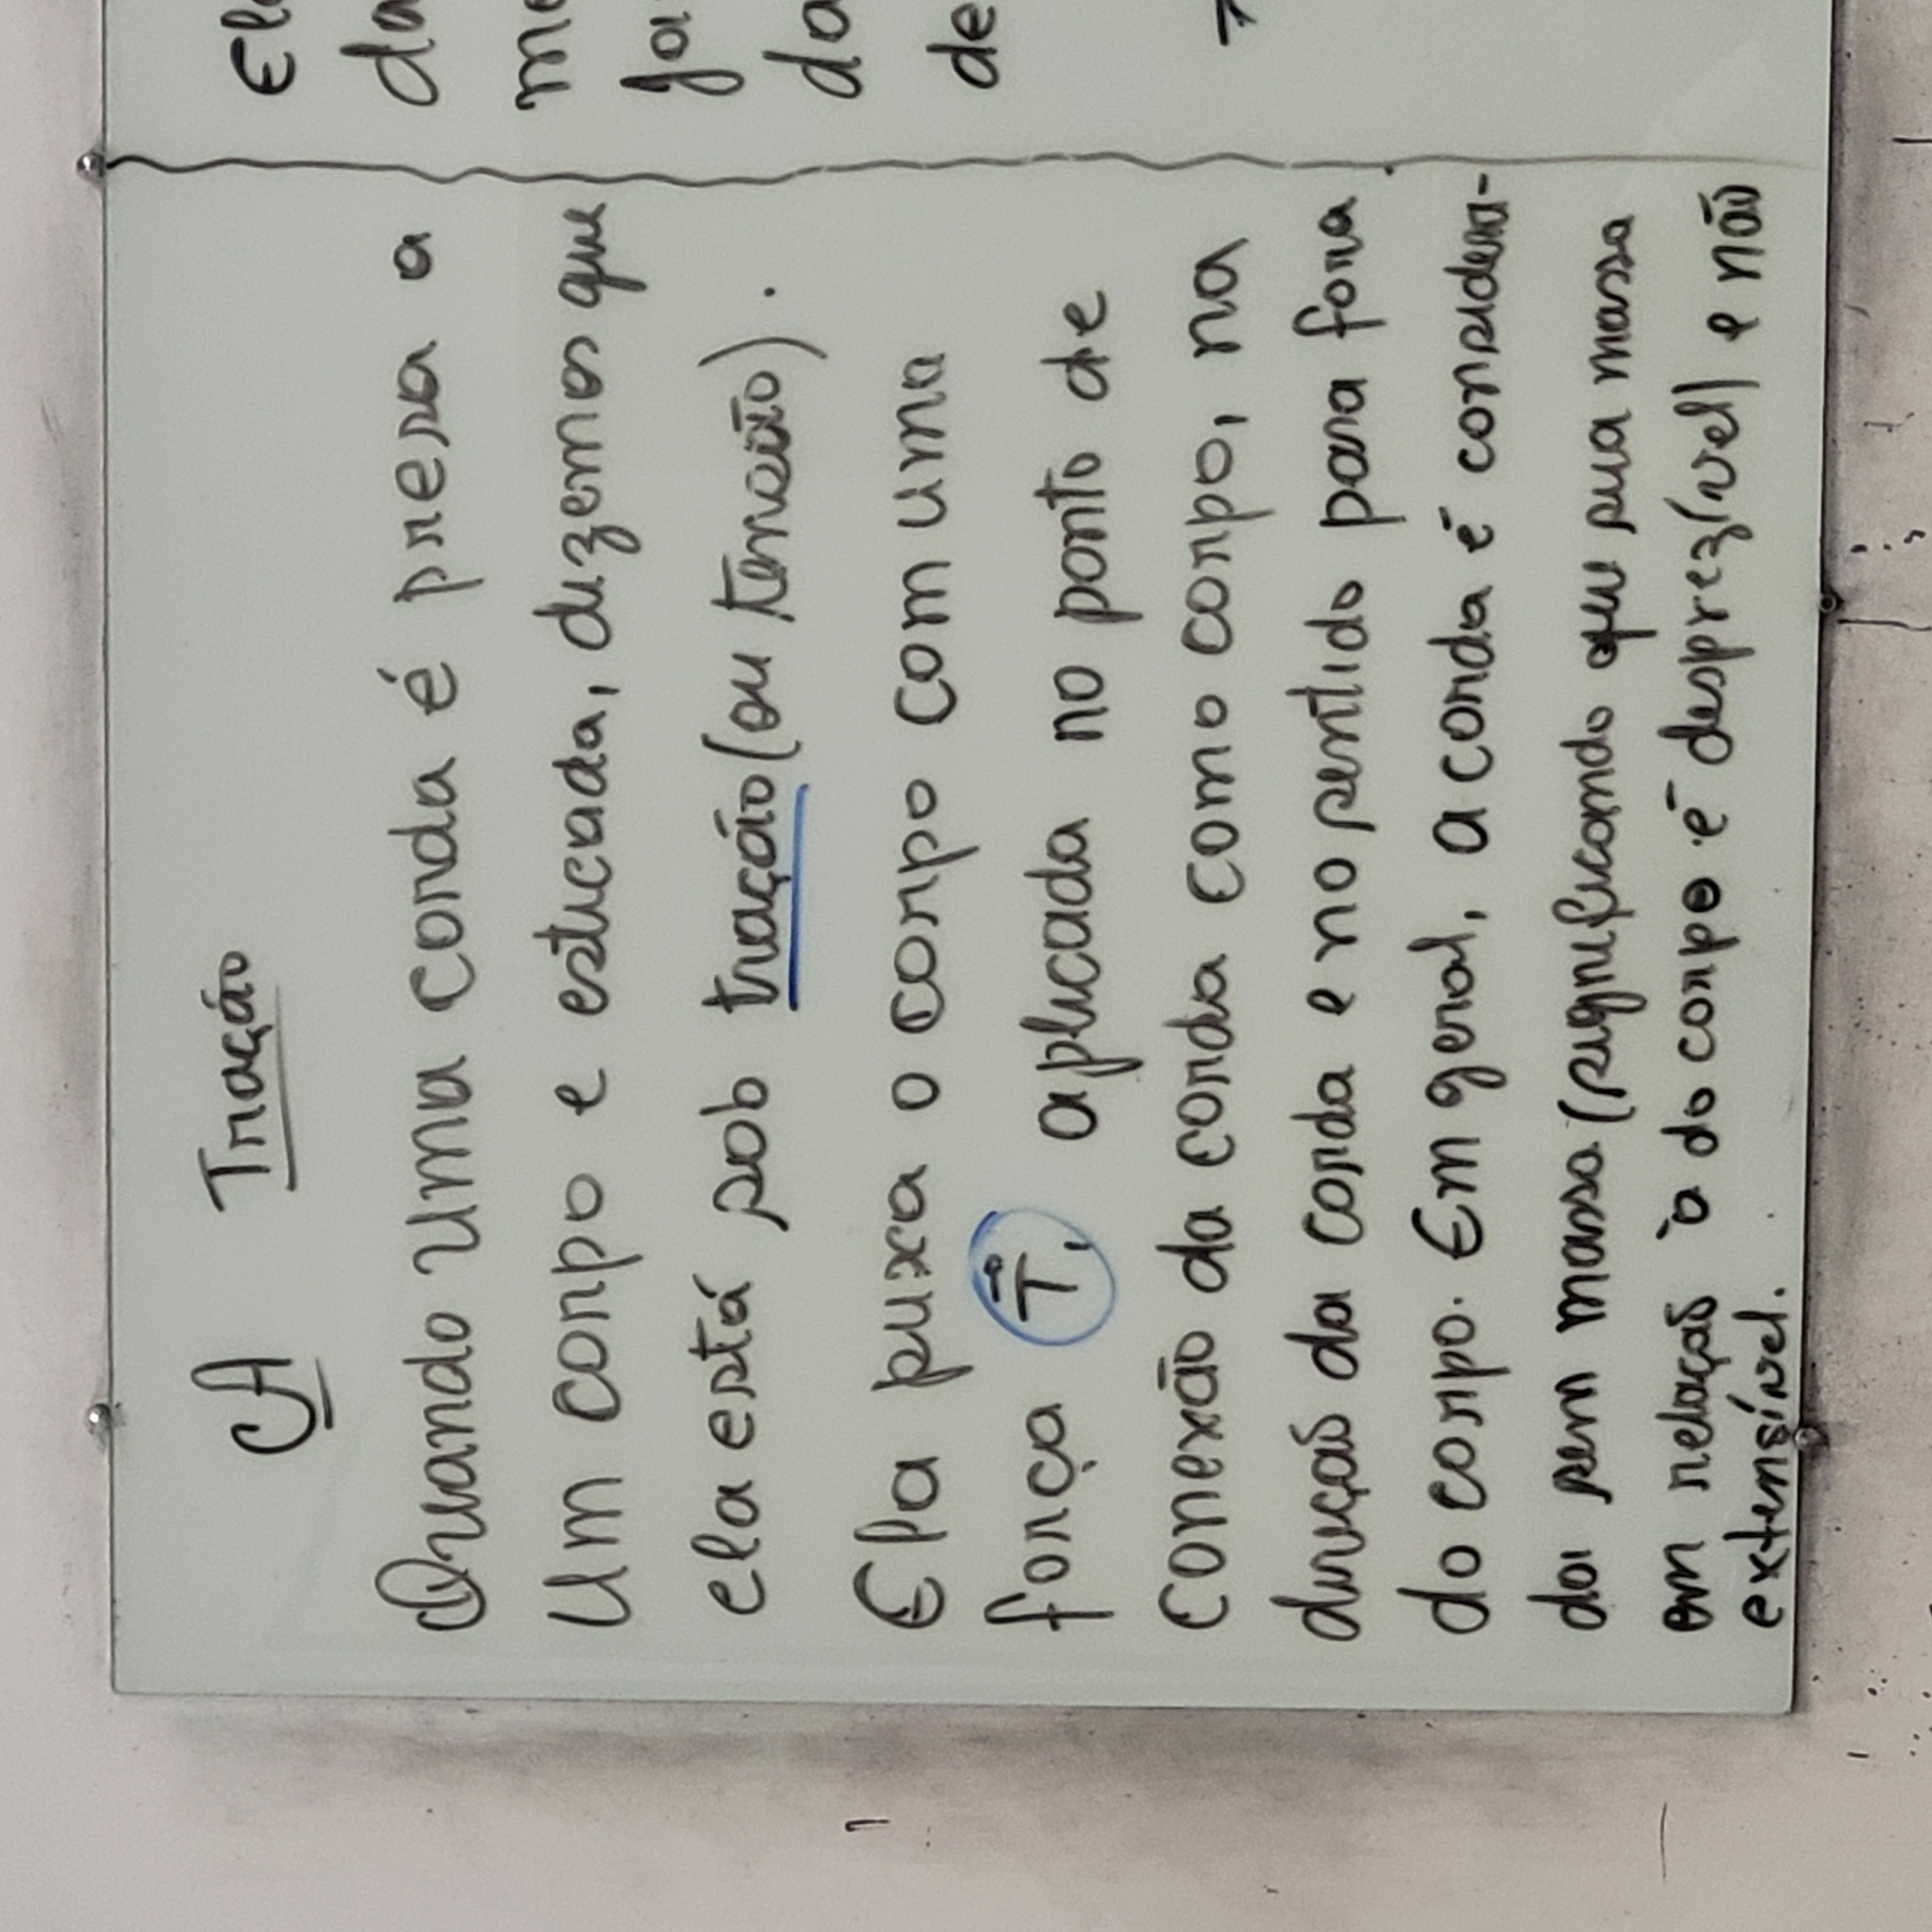 A Tração
Quando uma corda é presa a
um corpo e esticada, dizemos que
ela está sob tração (ou tensão).
Ela puxa o corpo com uma
força T, aplicada no ponto de
conexão da corda como corpo, na
direção da corda e no sentido para fora
do corpo. Em geral, a corda é considera-
da sem massa (significando que sua massa
em relação à do corpo é desprezível) e não
extensível.
da
de